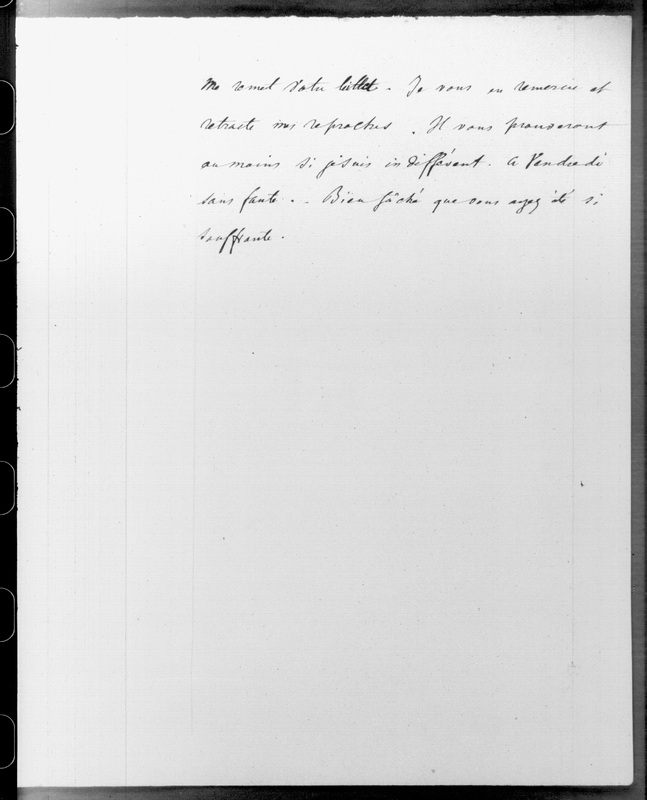 me remet votre billet. Je vous en remercie et
retracte mes reproches. Il vous prouveront
au moins si je suis indifférent. A Vendredi
sans faute. - Bien fâché que vous ayez été si
souffrante.